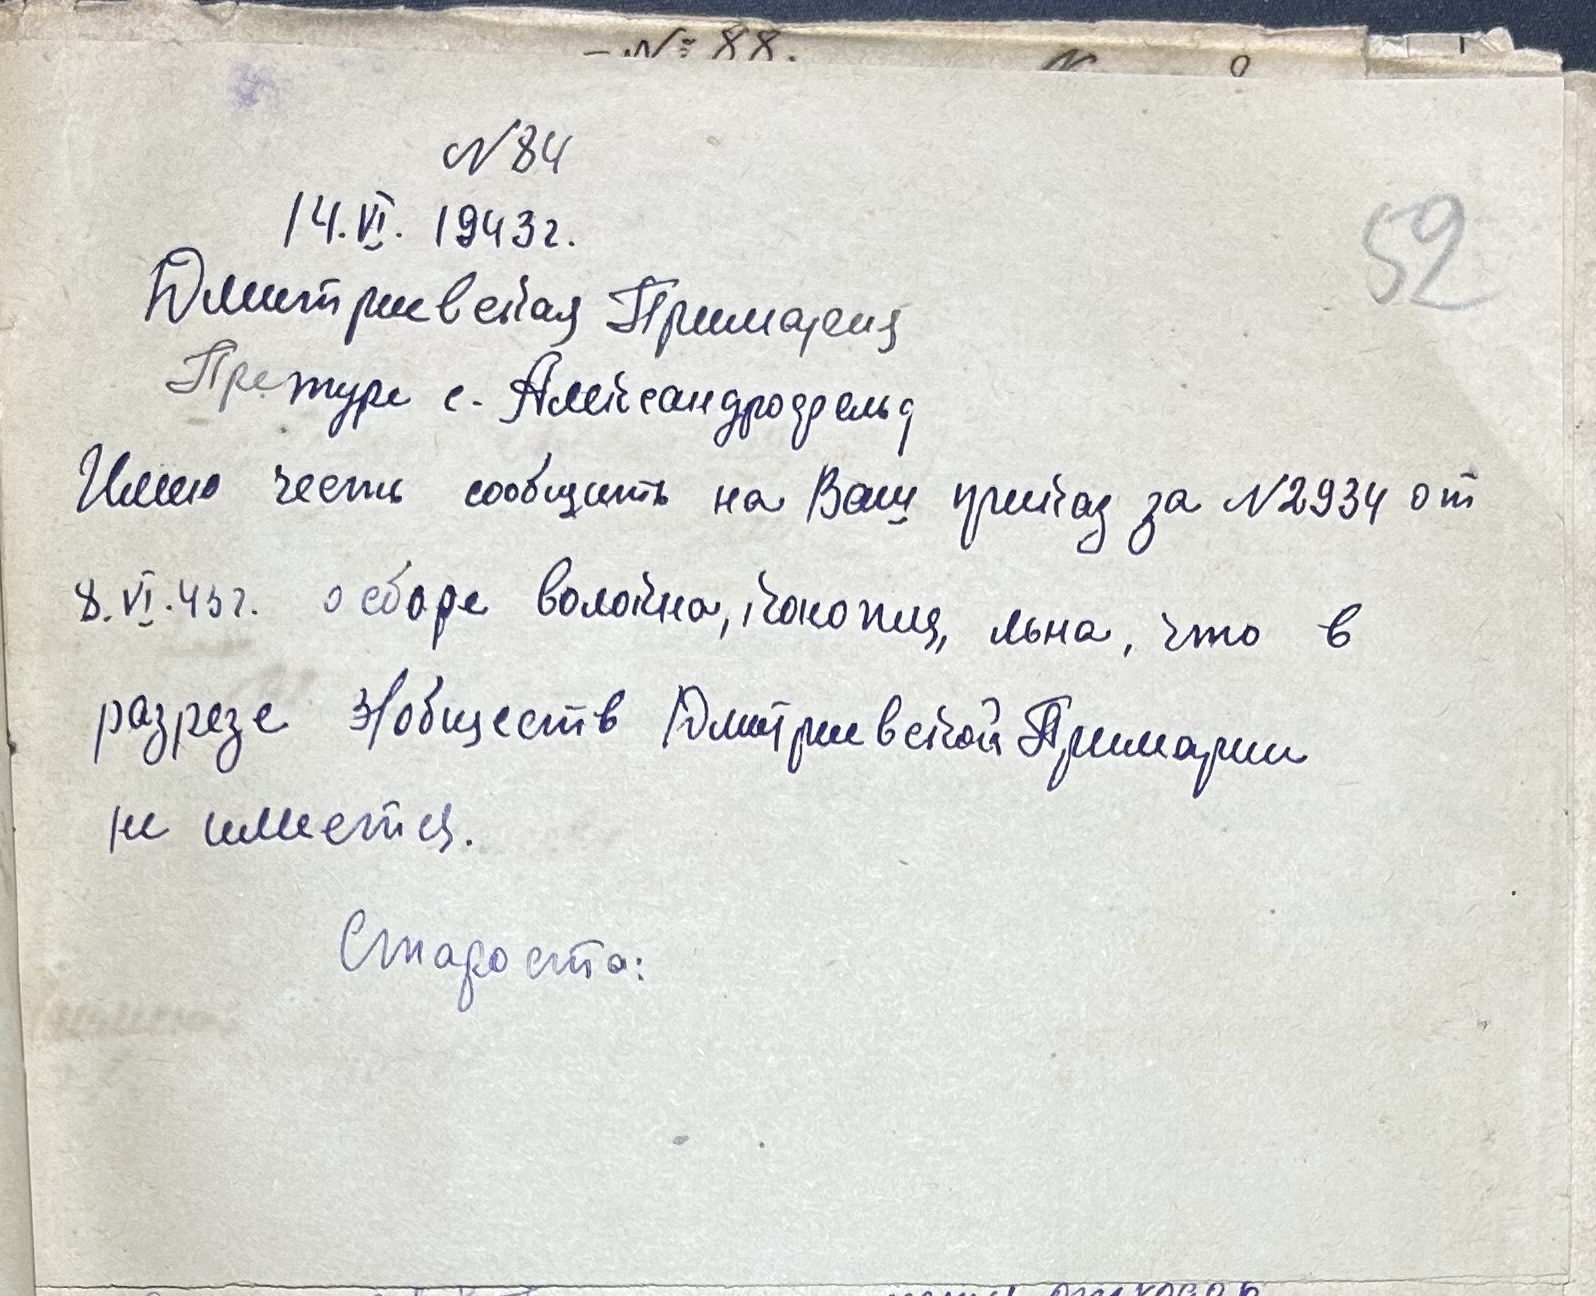 - № 88.
N 84
52
14.VI. 1943г.
Дмитриевская Примария
Претуре с. Александрофельд
Имею честь сообщить на Ваш приказ за N2934 от
8.VI.43г. о сборе волокна, конопля, льна, что в
разрезе 3х обществ Дмитриевской Примарии
не имеется.
Староста: